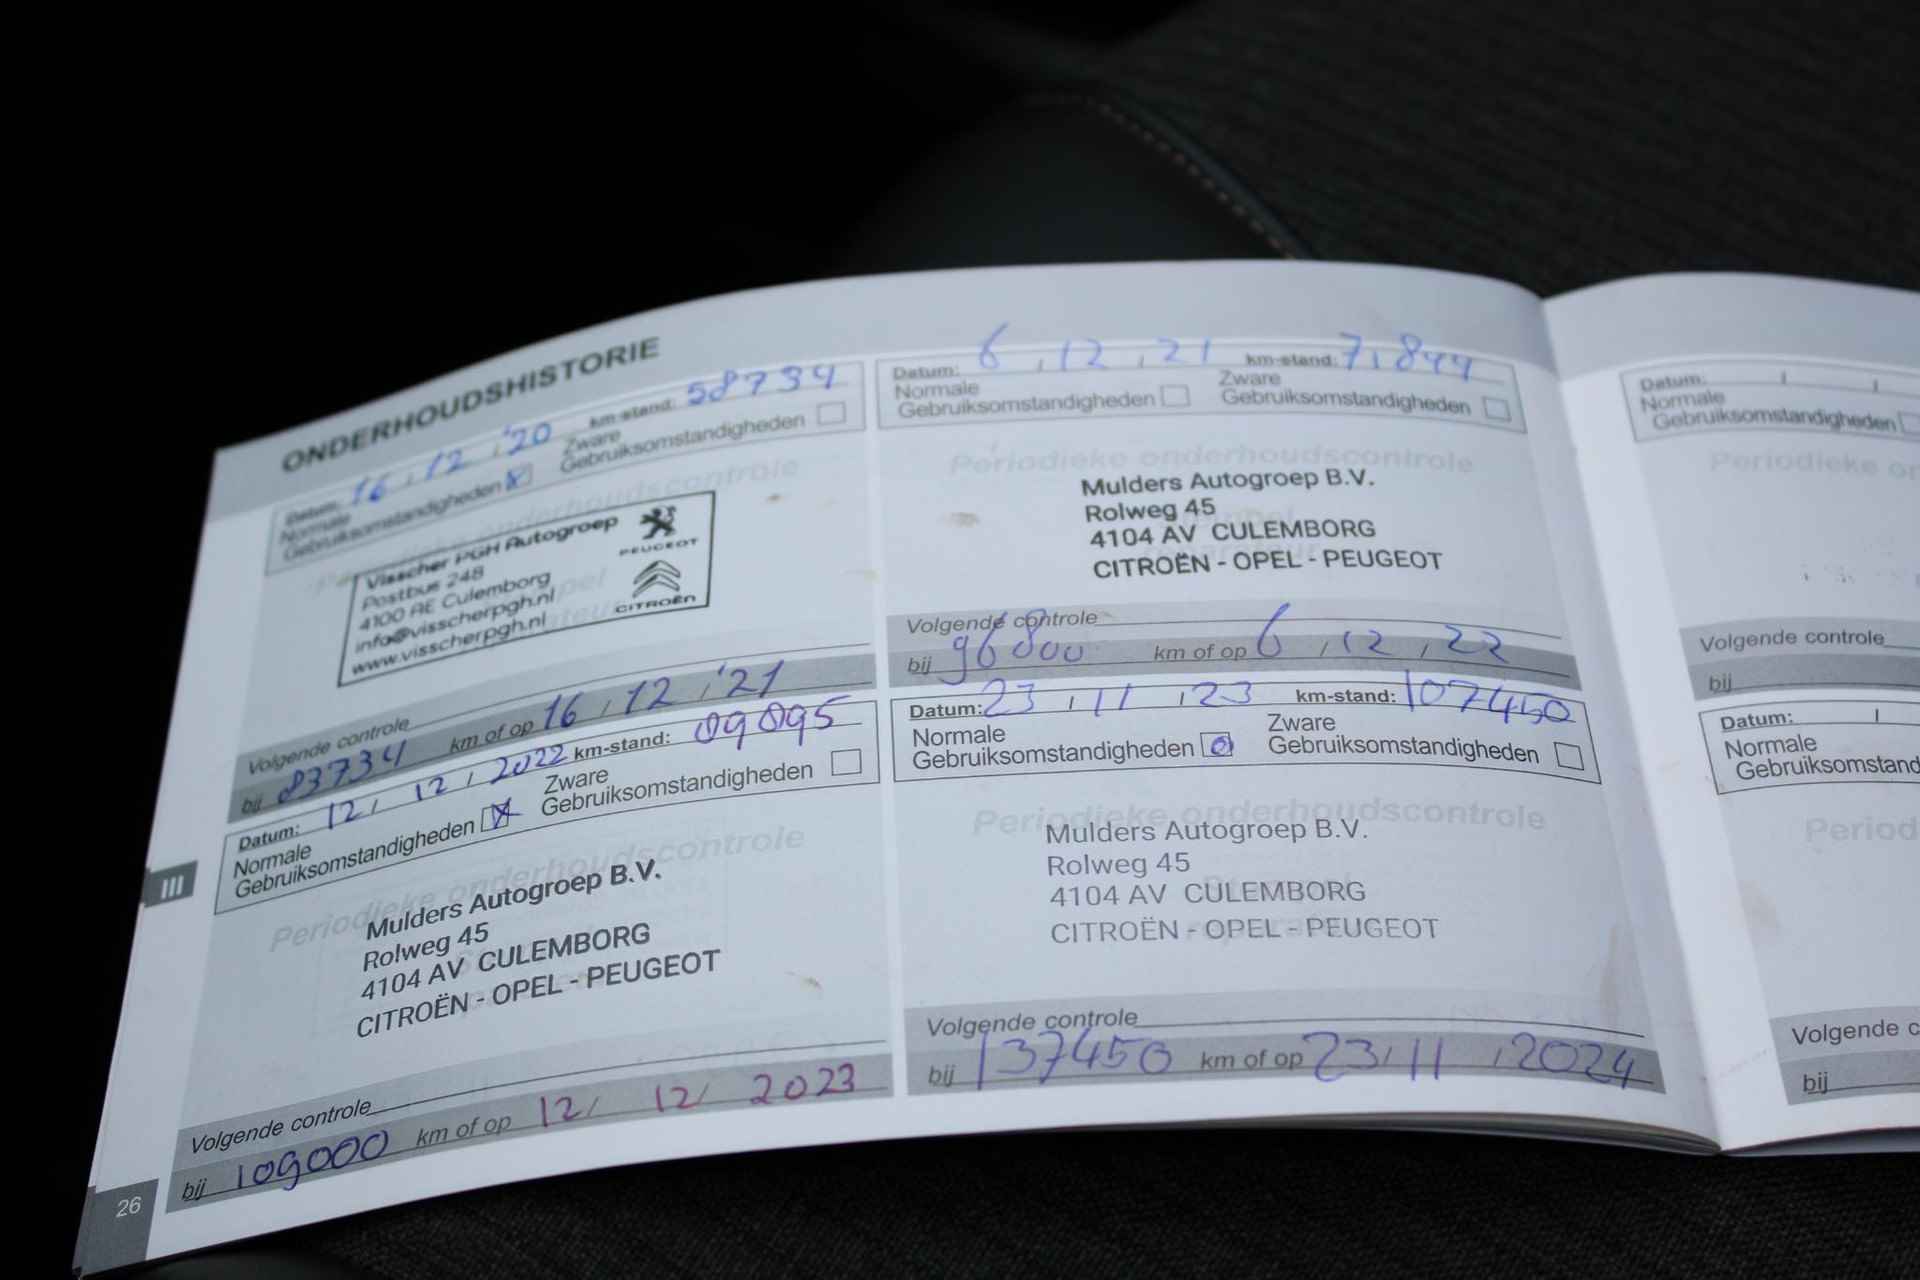 ONDERHOUDSHISTORIE
Datum: 16 / 12 / '20 km-stand: 58734
Normale Gebruiksomstandigheden
Zware Gebruiksomstandigheden
Periodieke onderhoudscontrole
Visscher PGH Autogroep
Postbus 248
4100 AE Culemborg
info@visscherpgh.nl
www.visscherpgh.nl
PEUGEOT
CITROËN
Volgende controle
bij 83734 km of op 16 / 12 / '21
Datum: 12 / 12 / 2022 km-stand:
Normale Gebruiksomstandigheden
Zware Gebruiksomstandigheden
Periodieke onderhoudscontrole
Mulders Autogroep B.V.
Rolweg 45
4104 AV CULEMBORG
CITROËN - OPEL - PEUGEOT
Volgende controle
bij 109000 km of op 12 / 12 / 2023
Datum: 6 / 12 / 21 km-stand: 71844
Normale Gebruiksomstandigheden
Zware Gebruiksomstandigheden
Periodieke onderhoudscontrole
Mulders Autogroep B.V.
Rolweg 45
4104 AV CULEMBORG
CITROËN - OPEL - PEUGEOT
Volgende controle
bij 96800 km of op 6 / 12 / 22
Datum: 23 / 11 / 23 km-stand: 107450
Normale Gebruiksomstandigheden
Zware Gebruiksomstandigheden
Periodieke onderhoudscontrole
Mulders Autogroep B.V.
Rolweg 45
4104 AV CULEMBORG
CITROËN - OPEL - PEUGEOT
Volgende controle
bij 137450 km of op 23 / 11 / 2024
III
26
Datum: / /
Normale
Gebruiksomstandigheden
Periodieke on
Volgende controle
bij
Datum: /
Normale
Gebruiksomstand
Period
Volgende c
bij